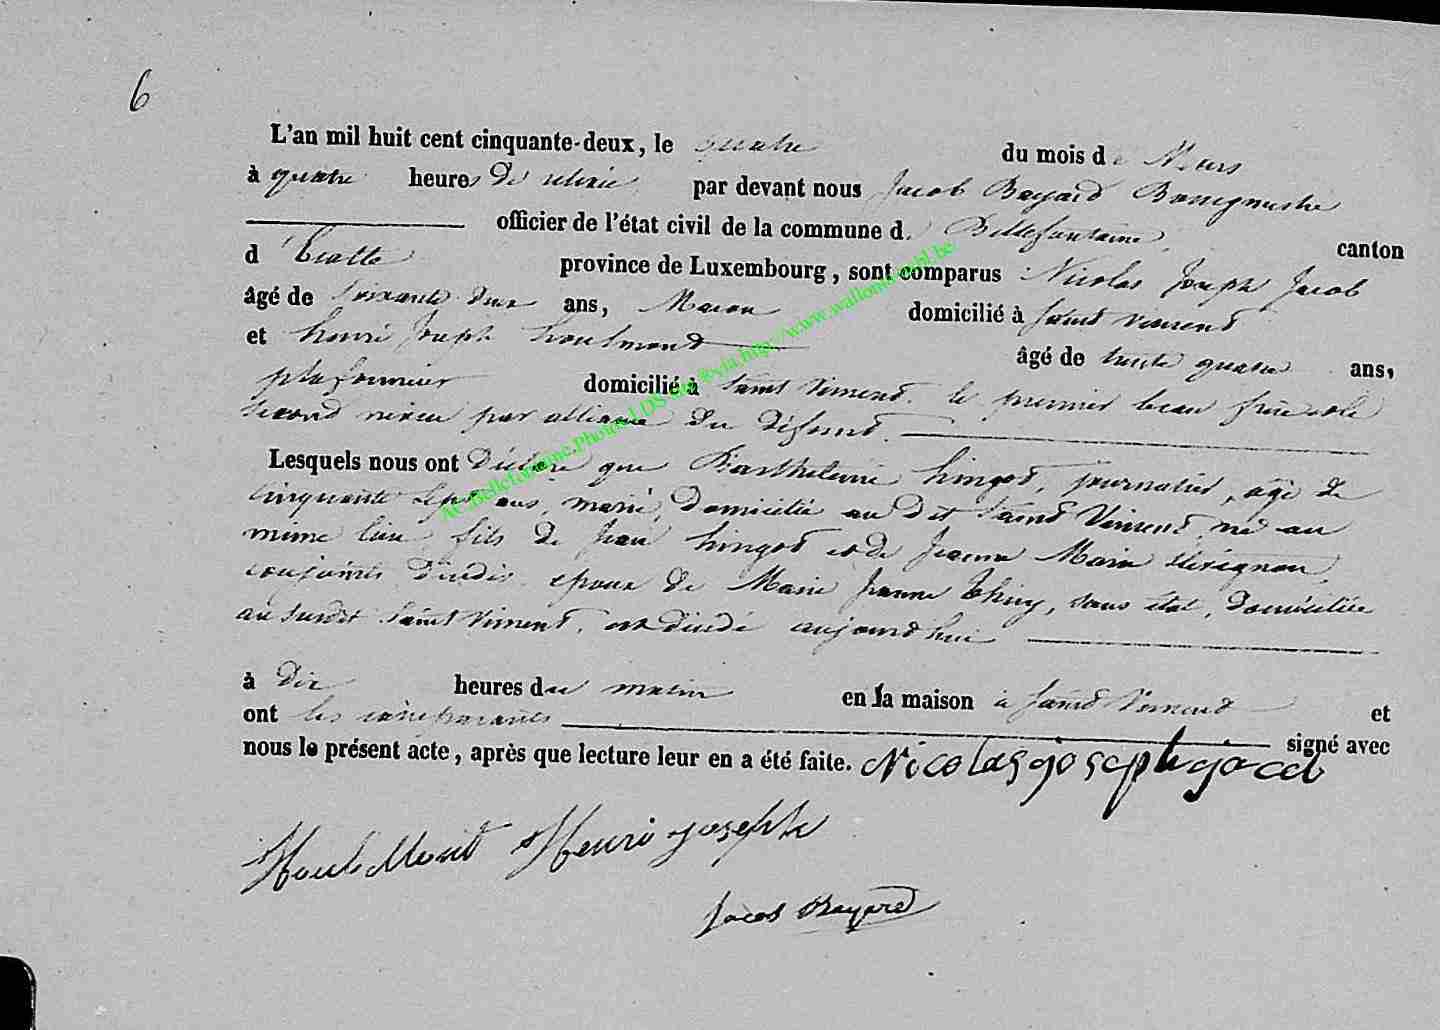 6
L'an mil huit cent cinquante-deux, le quatre du mois de Mars
à quatre heures de relevée par devant nous Jacob Bayard Bourgmestre
officier de l'état civil de la commune d. Bellefontaine, canton
d'Etalle province de Luxembourg, sont comparus Nicolas Joseph Jacob
âgé de soixante deux ans, Macon domicilié à Saint Vincent
et henri Joseph houlmont âgé de trente quatre ans,
plafonnier domicilié à Saint Vincent, le premier beau frère et le
second neveu par alliance du défunt.
Lesquels nous ont déclaré que Barthelemie hingot, journalier, agé de
cinquante sept ans, marié, domicilié au dit Saint Vincent, né au
même lieu, fils de Jean hingot et de Jeanne Marie
conjoints décédés, epoux de Marie Jeanne thiry, sans état, domiciliée
au susdit Saint Vincent, est décédé aujourd'hui
à dix heures du matin en sa maison à Saint Vincent et
ont les comparants signé avec
nous le présent acte, après que lecture leur en a été faite. Nicolas joseph jacob
Houlmont Henri joseph
Jacob Bayard
AC Bellefontaine.Photos LDS via http://www.wallonica-gl.be